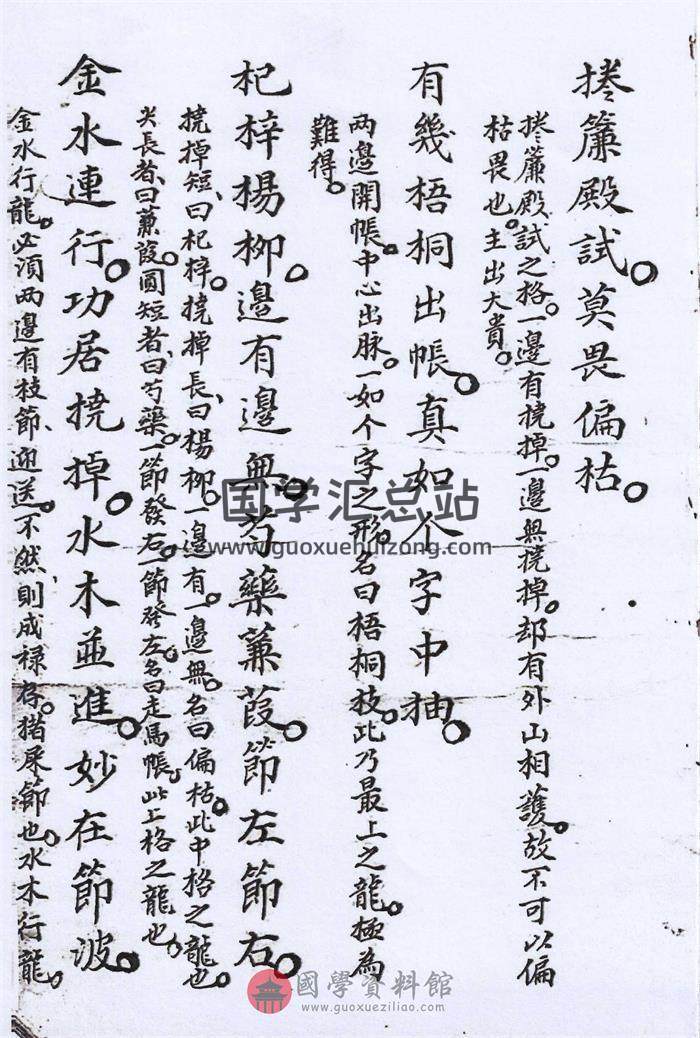 捲簾殿試。莫畏偏枯。
捲簾殿試之格。一邊有撓掉。一邊無撓掉。却有外山相護。故不可以偏
枯畏也。主出大貴。
有幾梧桐出帳。真如个字中抽。
两邊開帳。中心出脉。一如个字之形。名曰梧桐枝。此乃最上之龍。極為
難得。
杞梓楊柳。邊有邊無。芍藥蒹葭。節左節右。
撓掉短、曰杞梓。撓掉長、曰楊柳。一邊有。一邊無。名曰偏枯。此中格之龍也。
尖長者、曰蒹葭。圓短者、曰芍藥。一節發右。一節發左。名曰走馬帳。此上格之龍也。
金水連行。功居撓掉。水木並進。妙在節波。
金水行龍。必須两邊有枝節、迎送。不然、則成祿存。猪屎節也。水木行龍。
国学汇总站
www.guoxuehuizong.com
國學資料館
www.guoxueziliao.com